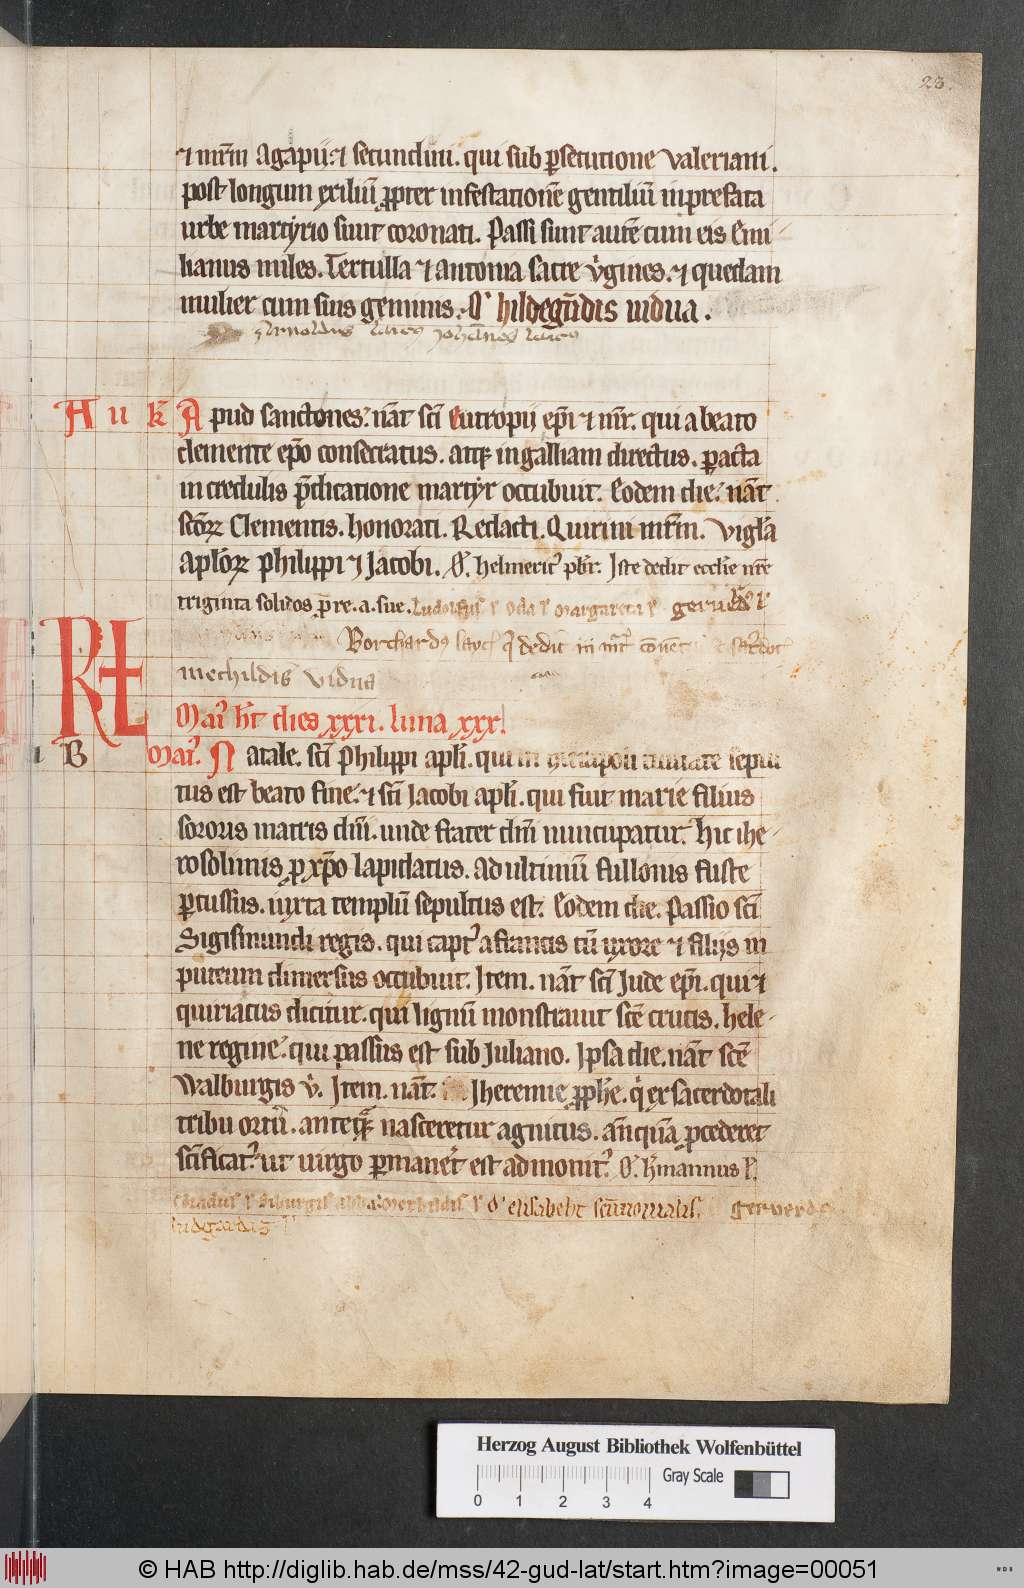 23.
⁊ mr̄m Agapii: ⁊ secundini. qui sub ꝑsecutione valeriani.
post longum exiliū ꝓpter infestationē gentiliū in prefata
urbe martyrio sunt coronati. Passi sunt autē cum eis Emi
lianus miles. Tertulla ⁊ antonia sacre v̓gines. ⁊ quedam
mulier cum suis geminis. O' hildegūdis uidua.
Arnoldus laicꝰ Johānes laicꝰ
A u k̄ Apud sanctones. nāt sc̄i Eutropij ep̄i ⁊ mr̄. qui a beato
clemente ep̄o consecratus. atqꝫ in galliam directus. ꝑacta
in credulis p̄dicatione martyr occubuit. Eodem die. nāt
sc̄orꝝ Clementis. honorati. Reclacti. Quirini mr̄m. Vigl̄a
Apl̄orꝝ Philippi ⁊ Jacobi. O'. helmericꝰ pbr̄. Iste dedit eccl̄ie nr̄e
triginta solidos p̄ re. a. sue. Ludolfus l̓ Oda l̓ Margareta l̓
Borchardꝰ layc̓ q̓ dedit
mechildis vidua
KL
Mai' h̄t dies xxxi. luna xxx.
i B Mai'. Natale. sc̄i Philippi apl̄i. qui in
tus est beato fine. ⁊ sc̄i Jacobi apl̄i. qui fuit marie filius
sororis matris dn̄i. unde frater dn̄i nuncupatur. Hic ihe
rosolimis ꝑ xp̄o lapidatus. ad ultimū fullonis fuste
ꝑcussus. iuxta templū sepultus est. Eodem die. Passio sc̄i
Sigismundi regis. qui captꝰ a francis cū uxore ⁊ filijs in
puteum dimersus occubuit. Item. nāt sc̄i Jude ep̄i. qui ⁊
quiriacus dicitur. qui lignū monstrauit sc̄e crucis. hele
ne regine. qui passus est sub Juliano. Ipsa die. nāt sc̄e
Walburgis v̓. Item. nāt. Jheremie ꝓph̄e. q̓ ex sacerdotali
tribu ortꝰ. anteqͣꝫ nasceretur agnitus. an̄quā ꝓcederet
sc̄ificatꝰ. ut uirgo ꝑmaner̄t est admonitꝰ. O'. h̄mannus l̓.
O' elisabeht
Herzog August Bibliothek Wolfenbüttel
Gray Scale
0 1 2 3 4
© HAB http://diglib.hab.de/mss/42-gud-lat/start.htm?image=00051